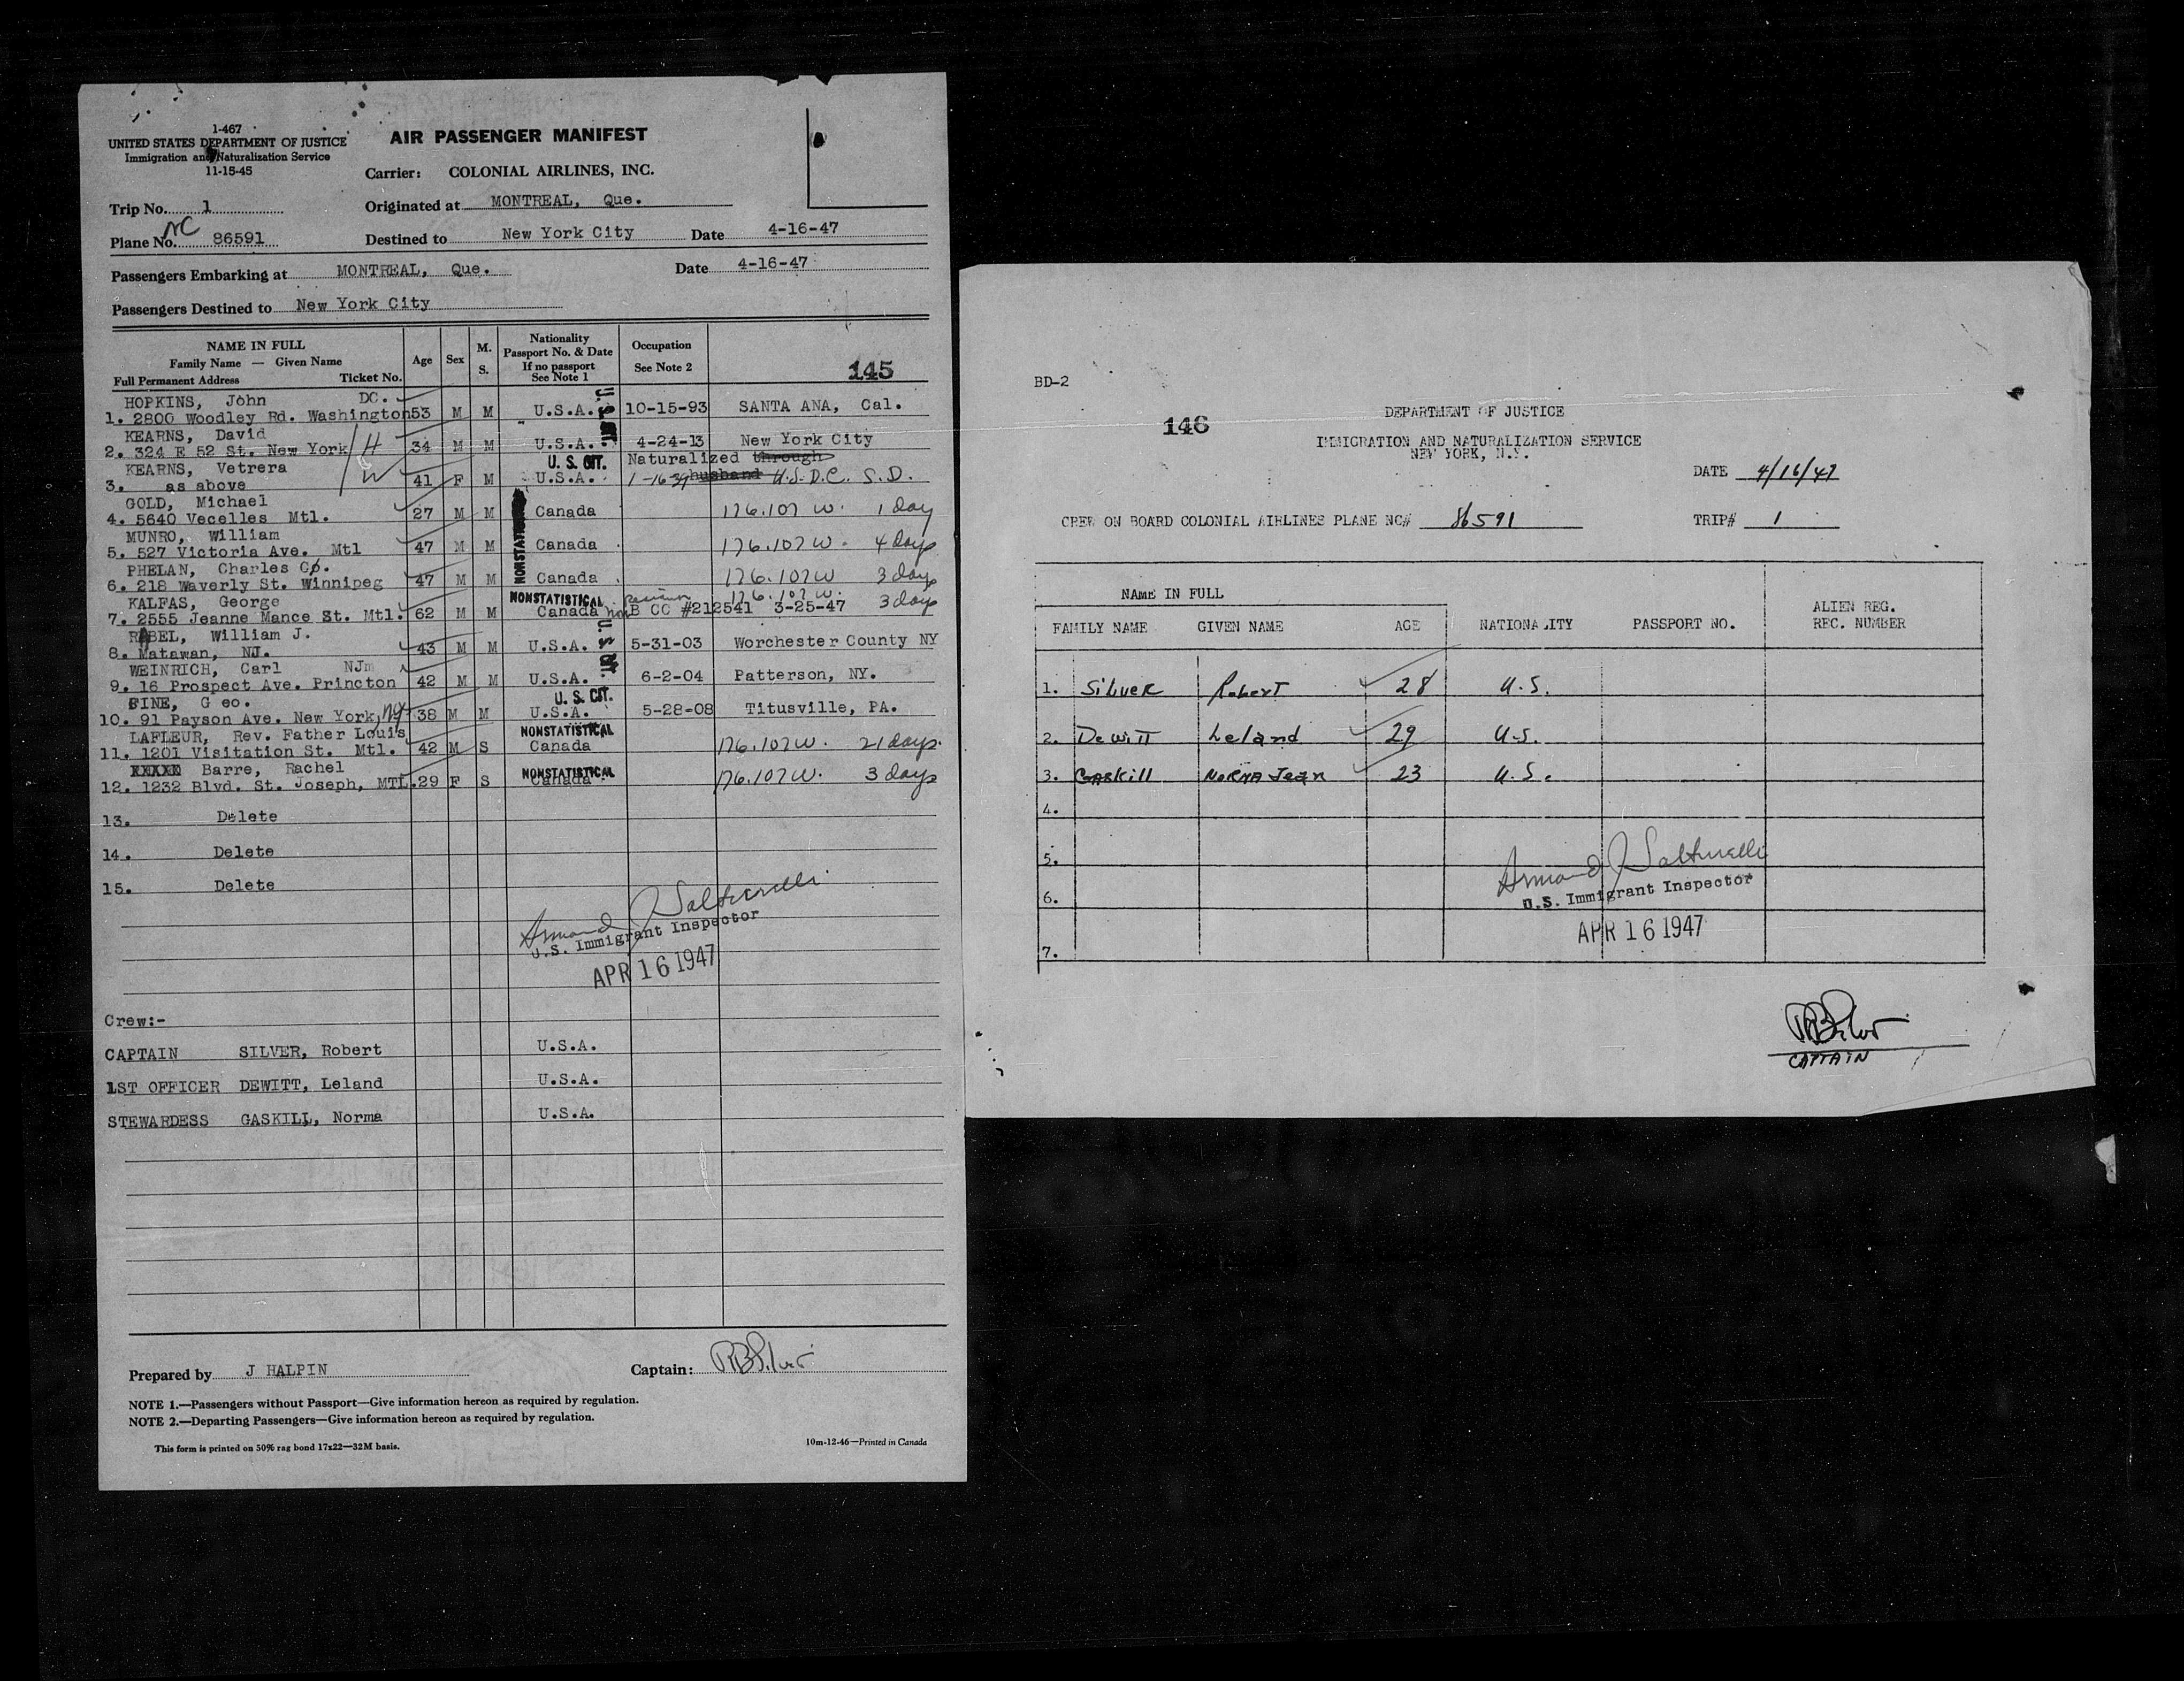 1-467
UNITED STATES DEPARTMENT OF JUSTICE
Immigration and Naturalization Service
11-15-45
AIR PASSENGER MANIFEST
Carrier: COLONIAL AIRLINES, INC.
Trip No. 1
Originated at MONTREAL, Que.
NC
Plane No. 86591
Destined to New York City Date 4-16-47
Passengers Embarking at MONTREAL, Que. Date 4-16-47
Passengers Destined to New York City
NAME IN FULL
Family Name — Given Name
Full Permanent Address Ticket No.
Age
Sex
M. S.
Nationality
Passport No. & Date
If no passport
See Note 1
Occupation
See Note 2
145
HOPKINS, John DC.
1. 2800 Woodley Rd. Washington 53 M M U.S.A. 10-15-93 SANTA ANA, Cal.
KEARNS, David
2. 324 E 52 St. New York H 34 M M U.S.A. 4-24-13 New York City
KEARNS, Vetrera U. S. CIT. Naturalized through
3. as above W 41 F M U.S.A. 1-16-39 husband U.S.D.C. S.D.
GOLD, Michael
4. 5640 Vecelles Mtl. 27 M M Canada 176.107 W. 1 day
MUNRO, William
5. 527 Victoria Ave. Mtl 47 M M Canada 176.107W. 4 days
PHELAN, Charles Co.
6. 218 Waverly St. Winnipeg 47 M M Canada 176.107W 3 days
KALFAS, George NONSTATISTICAL 176.107W.
7. 2555 Jeanne Mance St. Mtl. 62 M M Canada B CC #212541 3-25-47 3 days
RABEL, William J.
8. Matawan, NJ. 43 M M U.S.A. 5-31-03 Worchester County NY
WEINRICH, Carl NJm
9. 16 Prospect Ave. Princton 42 M M U.S.A. 6-2-04 Patterson, NY.
FINE, G eo. U. S. CIT.
10. 91 Payson Ave. New York, NY 38 M M U.S.A. 5-28-08 Titusville, PA.
LAFLEUR, Rev. Father Louis NONSTATISTICAL
11. 1201 Visitation St. Mtl. 42 M S Canada 176.107W. 21 days.
XXXXX Barre, Rachel NONSTATISTICAL
12. 1232 Blvd. St. Joseph, MTL. 29 F S Canada 176.107W. 3 days
13. Delete
14. Delete
15. Delete
Armand J Salturelli
U.S. Immigrant Inspector
APR 16 1947
Crew:-
CAPTAIN SILVER, Robert U.S.A.
1ST OFFICER DEWITT, Leland U.S.A.
STEWARDESS GASKILL, Norma U.S.A.
Prepared by J HALPIN
Captain: RB Silver
NOTE 1.—Passengers without Passport—Give information hereon as required by regulation.
NOTE 2.—Departing Passengers—Give information hereon as required by regulation.
This form is printed on 50% rag bond 17x22—32M basis.
10m-12-46—Printed in Canada
BD-2
146
DEPARTMENT OF JUSTICE
IMMIGRATION AND NATURALIZATION SERVICE
NEW YORK, N.Y.
DATE 4/16/47
CREW ON BOARD COLONIAL AIRLINES PLANE NC# 86591 TRIP# 1
NAME IN FULL
FAMILY NAME GIVEN NAME AGE NATIONALITY PASSPORT NO. ALIEN REG. REC. NUMBER
1. Silver Robert 28 U.S.
2. DeWitt Leland 29 U.S.
3. Gaskill Norma Jean 23 U.S.
4.
5.
6.
7.
Armand J Salturelli
U.S. Immigrant Inspector
APR 16 1947
RB Silver
CAPTAIN